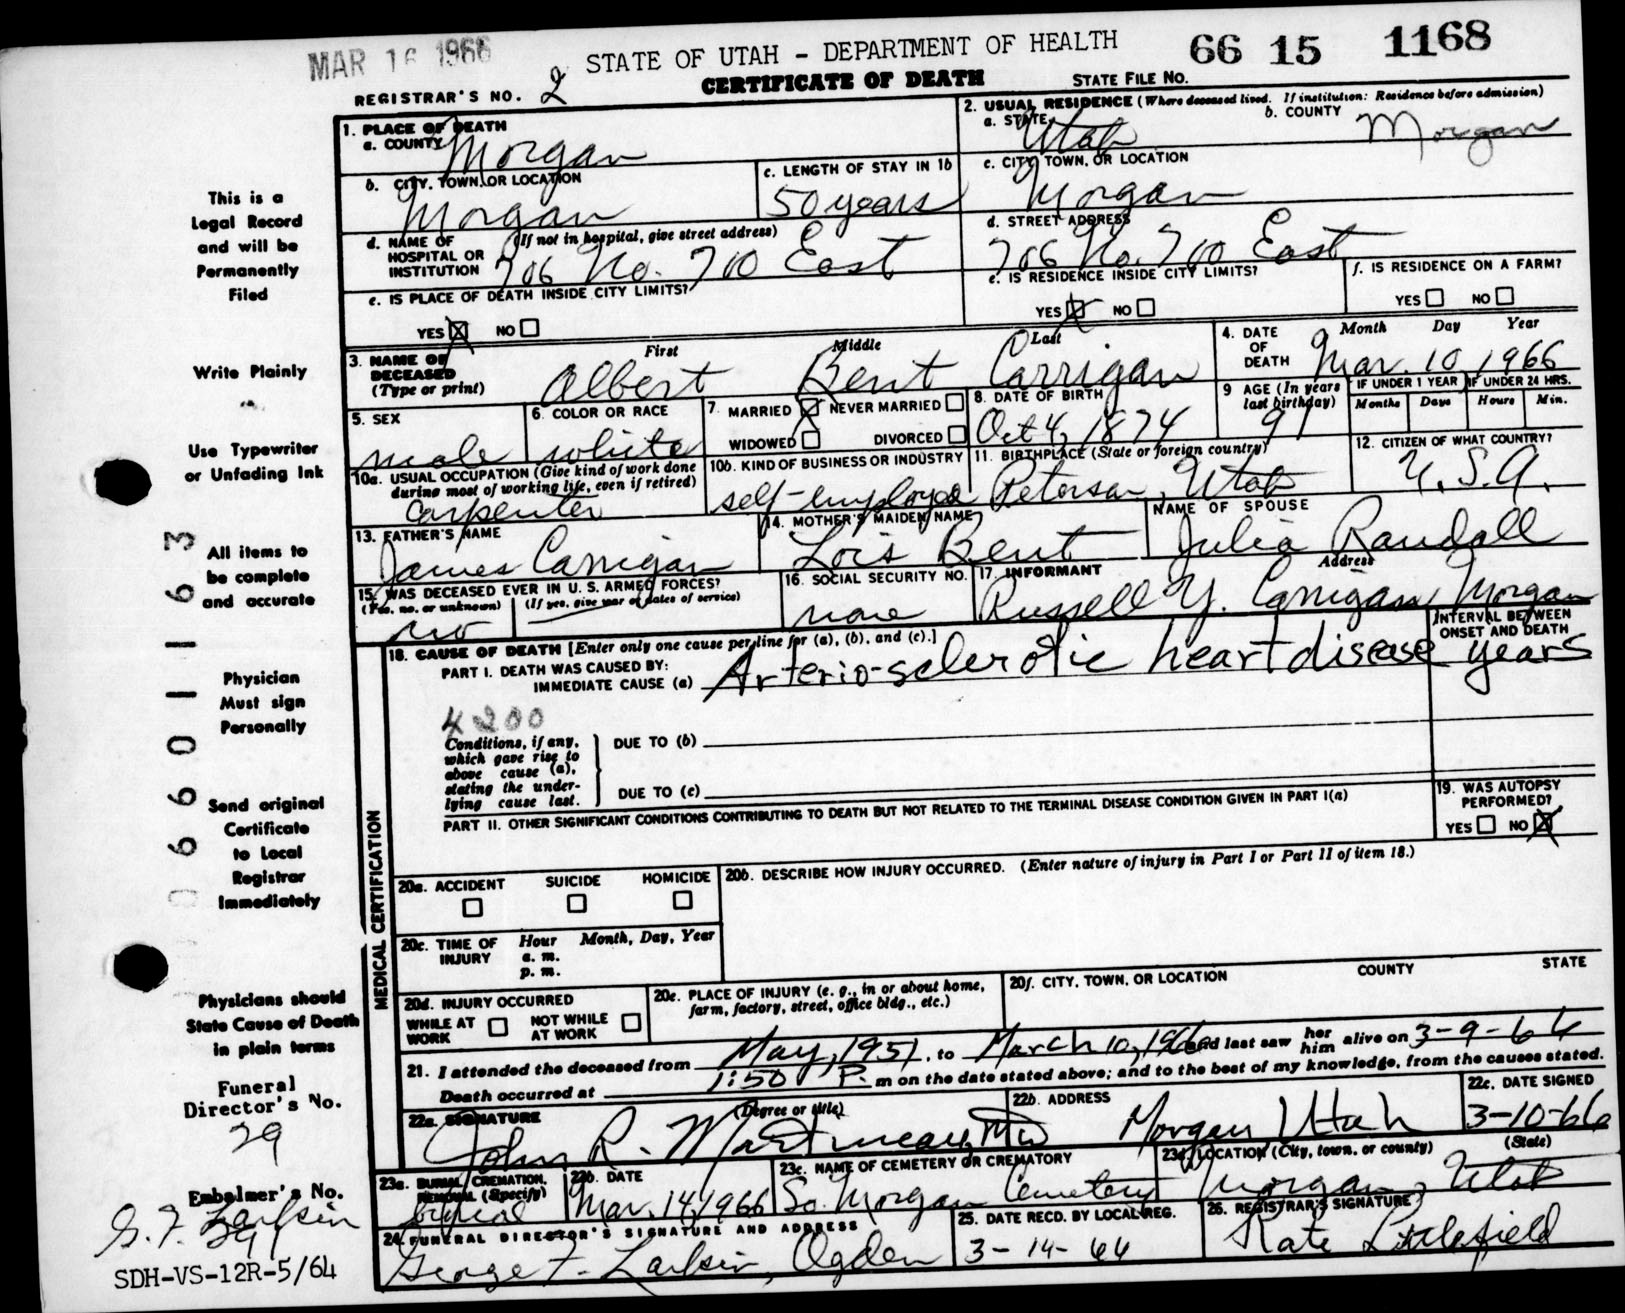 MAR 16 1966
STATE OF UTAH - DEPARTMENT OF HEALTH 66 15 1168
CERTIFICATE OF DEATH STATE FILE No.
REGISTRAR'S NO. 2
This is a
Legal Record
and will be
Permanently
Filed
Write Plainly
Use Typewriter
or Unfading Ink
All items to
be complete
and accurate
Physician
Must sign
Personally
Send original
Certificate
to Local
Registrar
Immediately
Physicians should
State Cause of Death
in plain terms
Funeral
Director's No.
29
Embalmer's No.
G. F. Larkin
SDH-VS-12R-5/64
06601163
1. PLACE OF DEATH
a. COUNTY Morgan
b. CITY, TOWN, OR LOCATION
Morgan
c. LENGTH OF STAY IN 1b
50 years
d. NAME OF (If not in hospital, give street address)
HOSPITAL OR
INSTITUTION 706 No. 700 East
e. IS PLACE OF DEATH INSIDE CITY LIMITS?
YES X NO
2. USUAL RESIDENCE (Where deceased lived. If institution: Residence before admission)
a. STATE Utah b. COUNTY Morgan
c. CITY, TOWN, OR LOCATION
Morgan
d. STREET ADDRESS
706 No. 700 East
e. IS RESIDENCE INSIDE CITY LIMITS?
YES X NO
f. IS RESIDENCE ON A FARM?
YES NO
3. NAME OF DECEASED (Type or print)
First Middle Last
Albert Bent Carrigan
4. DATE OF DEATH Month Day Year
Mar. 10, 1966
5. SEX
male
6. COLOR OR RACE
white
7. MARRIED X NEVER MARRIED
WIDOWED DIVORCED
8. DATE OF BIRTH
Oct 4, 1874
9 AGE (In years last birthday)
91
IF UNDER 1 YEAR IF UNDER 24 HRS.
Months Days Hours Min.
10a. USUAL OCCUPATION (Give kind of work done
during most of working life, even if retired)
carpenter
10b. KIND OF BUSINESS OR INDUSTRY
self-employed
11. BIRTHPLACE (State or foreign country)
Peterson, Utah
12. CITIZEN OF WHAT COUNTRY?
U.S.A.
13. FATHER'S NAME
James Carrigan
14. MOTHER'S MAIDEN NAME
Lois Bent
NAME OF SPOUSE
Julia Randall
15. WAS DECEASED EVER IN U. S. ARMED FORCES?
(Yes, no, or unknown) (If yes, give war or dates of service)
no
16. SOCIAL SECURITY NO.
none
17. INFORMANT Address
Russell Y. Carrigan, Morgan
18. CAUSE OF DEATH [Enter only one cause per line for (a), (b), and (c).]
INTERVAL BETWEEN
ONSET AND DEATH
PART I. DEATH WAS CAUSED BY:
IMMEDIATE CAUSE (a) Arterio-sclerotic heart disease years
4200
Conditions, if any,
which gave rise to
above cause (a),
stating the under-
lying cause last.
DUE TO (b)
DUE TO (c)
PART II. OTHER SIGNIFICANT CONDITIONS CONTRIBUTING TO DEATH BUT NOT RELATED TO THE TERMINAL DISEASE CONDITION GIVEN IN PART I(a)
19. WAS AUTOPSY
PERFORMED?
YES NO X
MEDICAL CERTIFICATION
20a. ACCIDENT SUICIDE HOMICIDE
20b. DESCRIBE HOW INJURY OCCURRED. (Enter nature of injury in Part I or Part II of item 18.)
20c. TIME OF INJURY Hour Month, Day, Year
a. m.
p. m.
20d. INJURY OCCURRED
WHILE AT WORK NOT WHILE AT WORK
20e. PLACE OF INJURY (e. g., in or about home,
farm, factory, street, office bldg., etc.)
20f. CITY, TOWN, OR LOCATION COUNTY STATE
21. I attended the deceased from May, 1951, to March 10, 1966 and last saw her him alive on 3-9-66
Death occurred at 1:50 P. m on the date stated above; and to the best of my knowledge, from the causes stated.
22a. SIGNATURE (Degree or title)
John R. Martineau, MD
22b. ADDRESS
Morgan Utah
22c. DATE SIGNED
3-10-66
23a. BURIAL, CREMATION,
REMOVAL (Specify)
burial
22b. DATE
Mar. 14, 1966
23c. NAME OF CEMETERY OR CREMATORY
So. Morgan Cemetery
23d. LOCATION (City, town, or county) (State)
Morgan, Utah
24. FUNERAL DIRECTOR'S SIGNATURE AND ADDRESS
George F. Larkin, Ogden
25. DATE RECD. BY LOCAL REG.
3-14-66
26. REGISTRAR'S SIGNATURE
Kate Littlefield